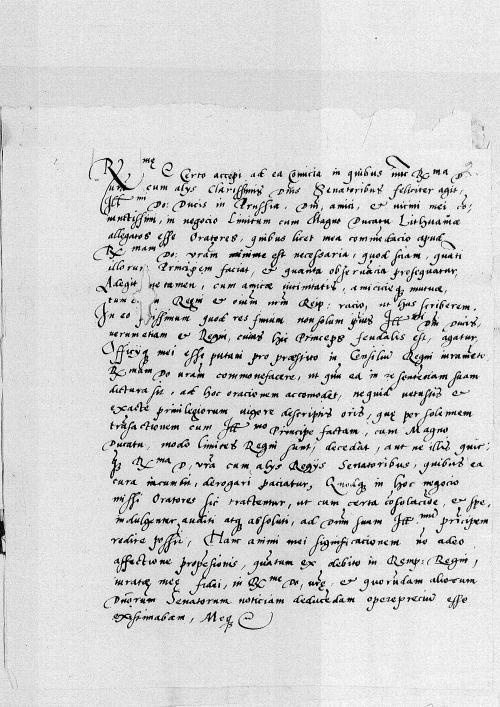 R me Certo accepi ad ea Comicia in quibus nunc R ma D
sua cum alys Clarissimis Dnis Senatoribus feliciter agit,
Ill mi Do: Ducis in Prussia, Dni, amici, et vicini mei co=
nunctissimi, in negocio Limitum cum Magno Ducatu Lithuaniæ
allegatos esse Oratores, quibus licet mea commendacio apud
R mam Do: vram minime est necessaria, quod sciam, quati
illorum Principem faciat, et quanta observancia prosequatur,
Adegit me tamen, cum amicæ vicinitatis, amiciciæq mutuæ,
tum Regni et omnium Reip: racio, ut has scriberem.
In eo quod res finium non solum ipsius Ill mi Dni Ducis,
verum etiam et Regni, cuius hic Princeps feudalis est, agatur,
Officijq mei esse putavi pro præstito in Consilium Regni iuramento,
R mam Do vram commonefacere, ut quu ea in re sententiam suam
dictura sit, ad hoc orationem accomodet, ne quid vetustis et
exacte privilegiorum vigore descriptis oris, quæ per solemnem
transactionem cum Ill mo Principe factam, cum Magno
Ducatu, modo limites Regni sunt, decedat, aut ne illis quic=
q R ma D, vra cum alys Regys Senatoribus, quibus ea
cura incumbit, derogari paciatur, Quodq in hoc negocio
missi Oratores sic tractentur, ut cum certa consolacione, et spe,
indulgenter auditi atq absoluti, ad Dnum suum Ill mum principem
redire possint, Hanc animi mei significationem no adeo
affectione propensionis, quatum ex debito in Remp: Regni,
iuratæ meæ fidei, in R me Do, vræ, et quorundam aliorum
Dnorum Senatorum noticiam deducendam operepreciu esse
existimabam, Meq